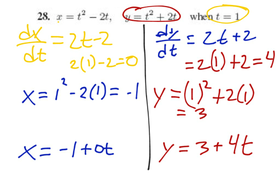 28. x = t² − 2t, y = t² + 2t when t = 1
dx/dt = 2t − 2
2(1) − 2 = 0
x = 1² − 2(1) = −1
x = −1 + 0t
dy/dt = 2t + 2
= 2(1) + 2 = 4
y = (1)² + 2(1)
= 3
y = 3 + 4t